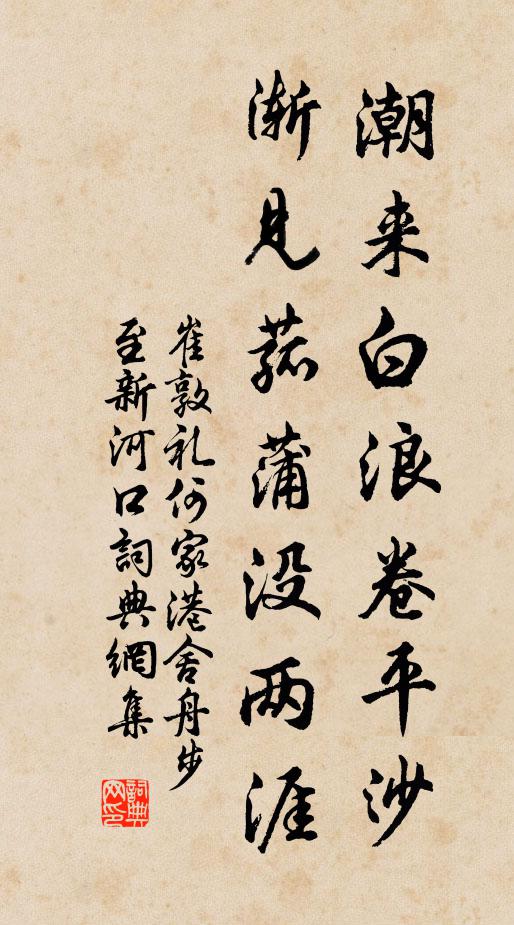 潮来白浪卷平沙
渐见菰蒲没两涯
崔敦礼何家港舍舟步
至新河口詞典網集
詞典
网印